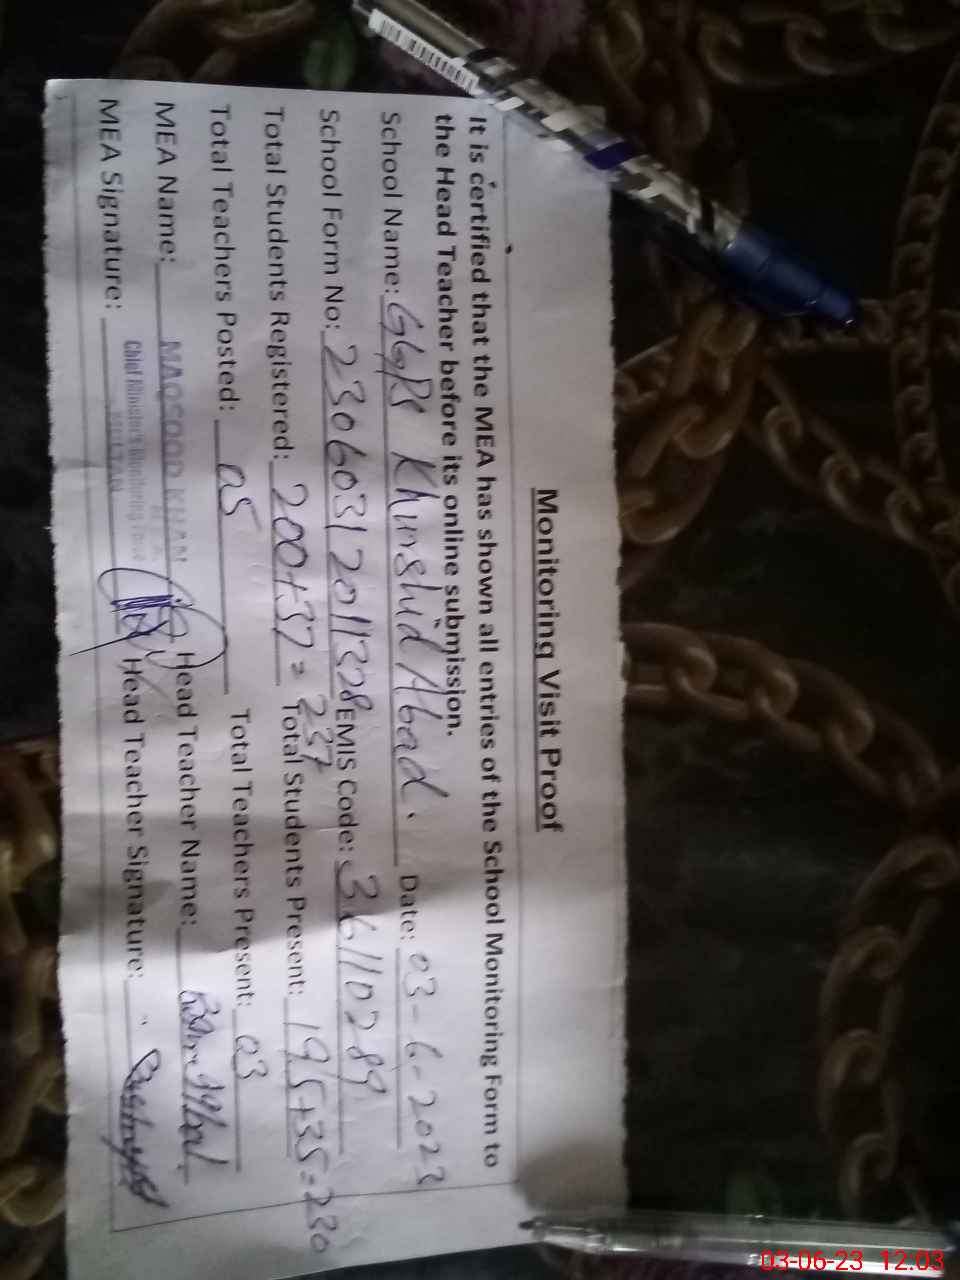 Monitoring Visit Proof
It is certified that the MEA has shown all entries of the School Monitoring Form to
the Head Teacher before its online submission.
School Name: GGPS Khurshid Abad. Date: 03-6-2023
School Form No: 2306031201132 8 EMIS Code: 36110289
Total Students Registered: 200+37=237 Total Students Present: 195+35=230
Total Teachers Posted: 05 Total Teachers Present: 03
MEA Name: MAQSOOD KHAN Head Teacher Name:
MEA Signature: Chief Minister's Monitoring Force Head Teacher Signature:
03-06-23 12:03